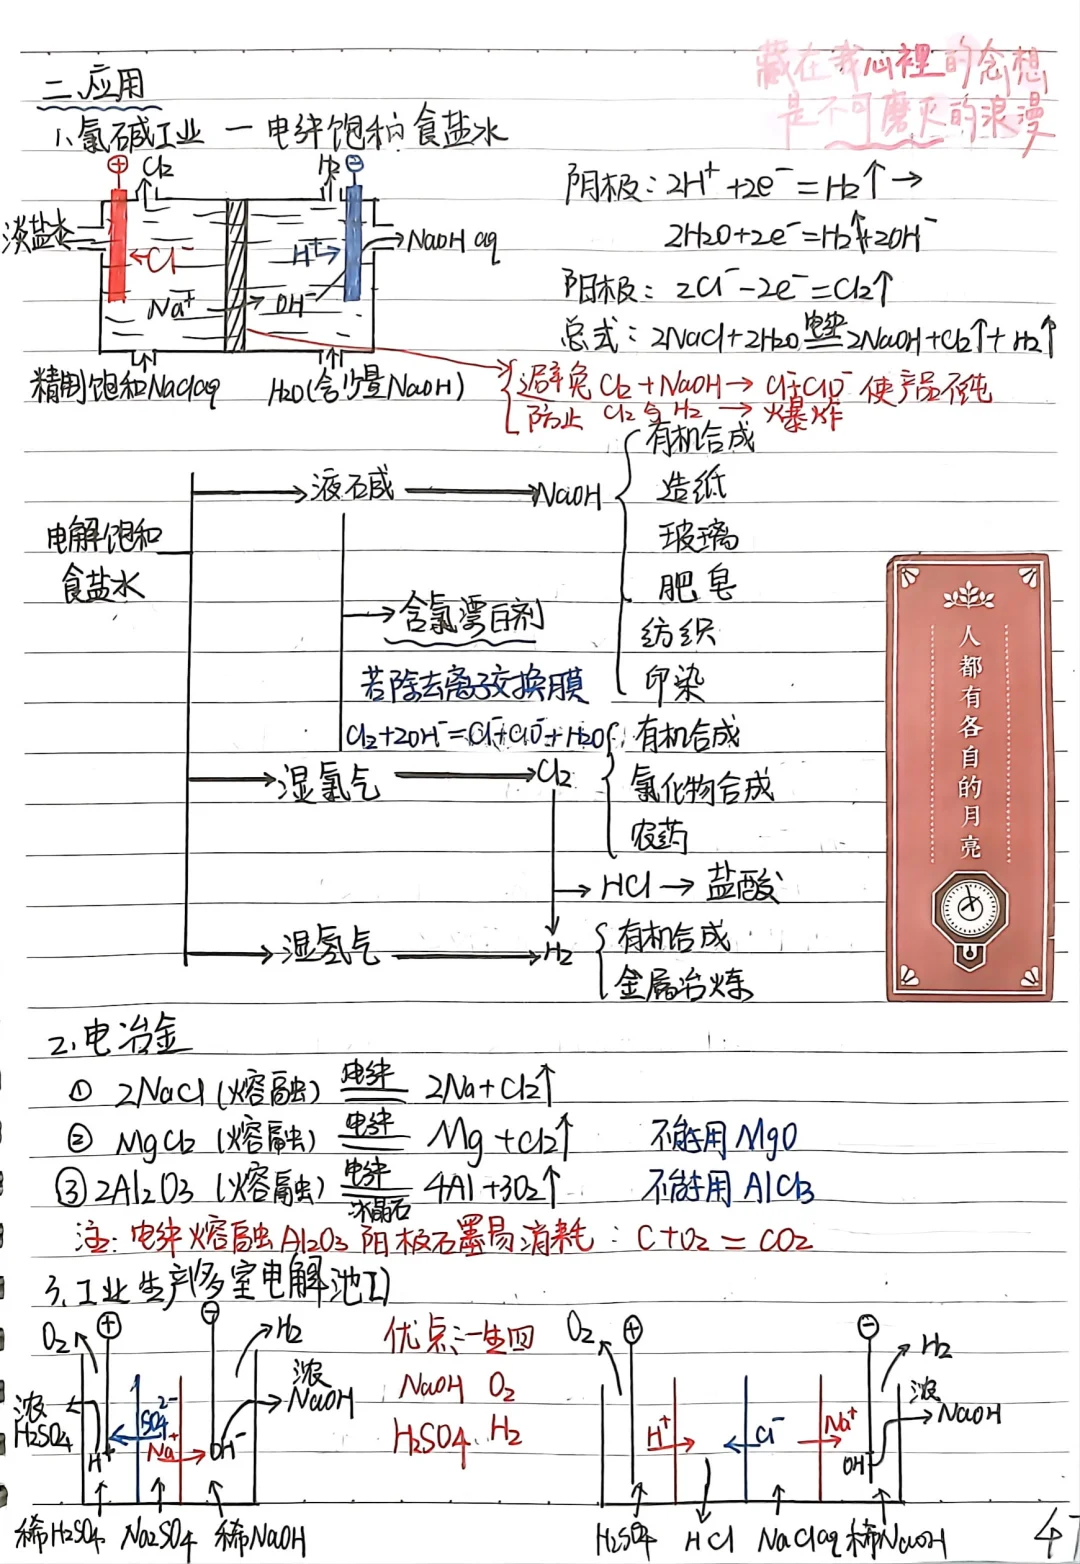 藏在我心裡的念想
是不可磨灭的浪漫
二.应用
1.氯碱工业 — 电解饱和食盐水
⊕ Cl₂ H₂ ⊖
淡盐水 Cl⁻ H⁺ NaOH aq
Na⁺ OH⁻
精制饱和NaClaq H₂O(含少量NaOH)
阴极：2H⁺+2e⁻=H₂↑→
2H₂O+2e⁻=H₂↑+2OH⁻
阳极：2Cl⁻-2e⁻=Cl₂↑
总式：2NaCl+2H₂O 电解 2NaOH+Cl₂↑+H₂↑
避免 Cl₂+NaOH→Cl⁻+ClO⁻ 使产品不纯
防止 Cl₂与H₂ → 爆炸
电解饱和
食盐水
液碱 → NaOH
有机合成
造纸
玻璃
肥皂
纺织
印染
含氯漂白剂
若除去离子交换膜
Cl₂+2OH⁻=Cl⁻+ClO⁻+H₂O
湿氯气 → Cl₂
有机合成
氯化物合成
农药
HCl → 盐酸
湿氢气 → H₂
有机合成
金属冶炼
人都有各自的月亮
2.电冶金
① 2NaCl(熔融) 电解 2Na+Cl₂↑
② MgCl₂(熔融) 电解 Mg+Cl₂↑ 不能用MgO
③ 2Al₂O₃(熔融) 电解 冰晶石 4Al+3O₂↑ 不能用AlCl₃
注：电解熔融Al₂O₃阳极石墨易消耗：C+O₂=CO₂
3.工业生产(多室电解池Ⅰ)
O₂ ⊕ ⊖ H₂
浓H₂SO₄ SO₄²⁻ 浓NaOH
H⁺ Na⁺ OH⁻
稀H₂SO₄ Na₂SO₄ 稀NaOH
优点：一生四
NaOH O₂
H₂SO₄ H₂
O₂ ⊕ ⊖ H₂
H⁺ Cl⁻ Na⁺ 浓NaOH
OH⁻
H₂SO₄ HCl NaClaq 稀NaOH